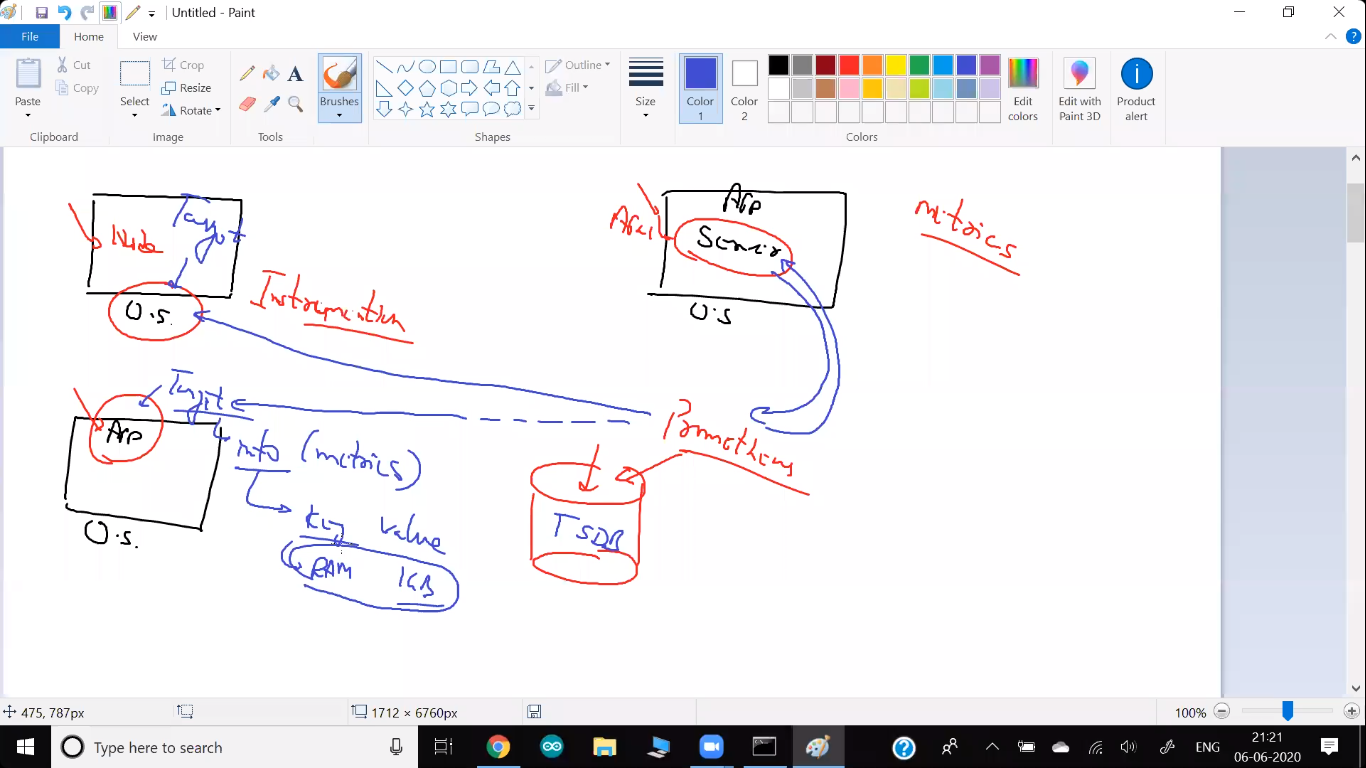 Untitled - Paint
File
Home
View
Paste
Cut
Copy
Clipboard
Select
Crop
Resize
Rotate
Image
Tools
Brushes
Shapes
Outline
Fill
Size
Color 1
Color 2
Colors
Edit colors
Edit with Paint 3D
Product alert
Node
Target
O.S.
Instrumention
App
O.S
metrics
Target
App
info (metrics)
O.S.
Key value
RAM 1GB
Prometheus
TSDB
475, 787px
1712 × 6760px
100%
Type here to search
ENG
21:21
06-06-2020